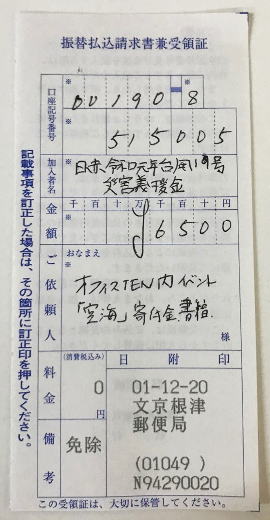 振替払込請求書兼受領証
口座記号番号
00190 8
515005
加入者名
日赤令和元年台風19号
災害義援金
金額
千 百 十 万 千 百 十 円
¥6500
ご依頼人
おなまえ
オフィスTEN内イベント
「空海」寄付金.書籍.
様
料金
(消費税込み)
0
円
備考
免除
日附印
01-12-20
文京根津
郵便局
(01049)
N94290020
記載事項を訂正した場合は、その箇所に訂正印を押してください。
この受領証は、大切に保管してください。